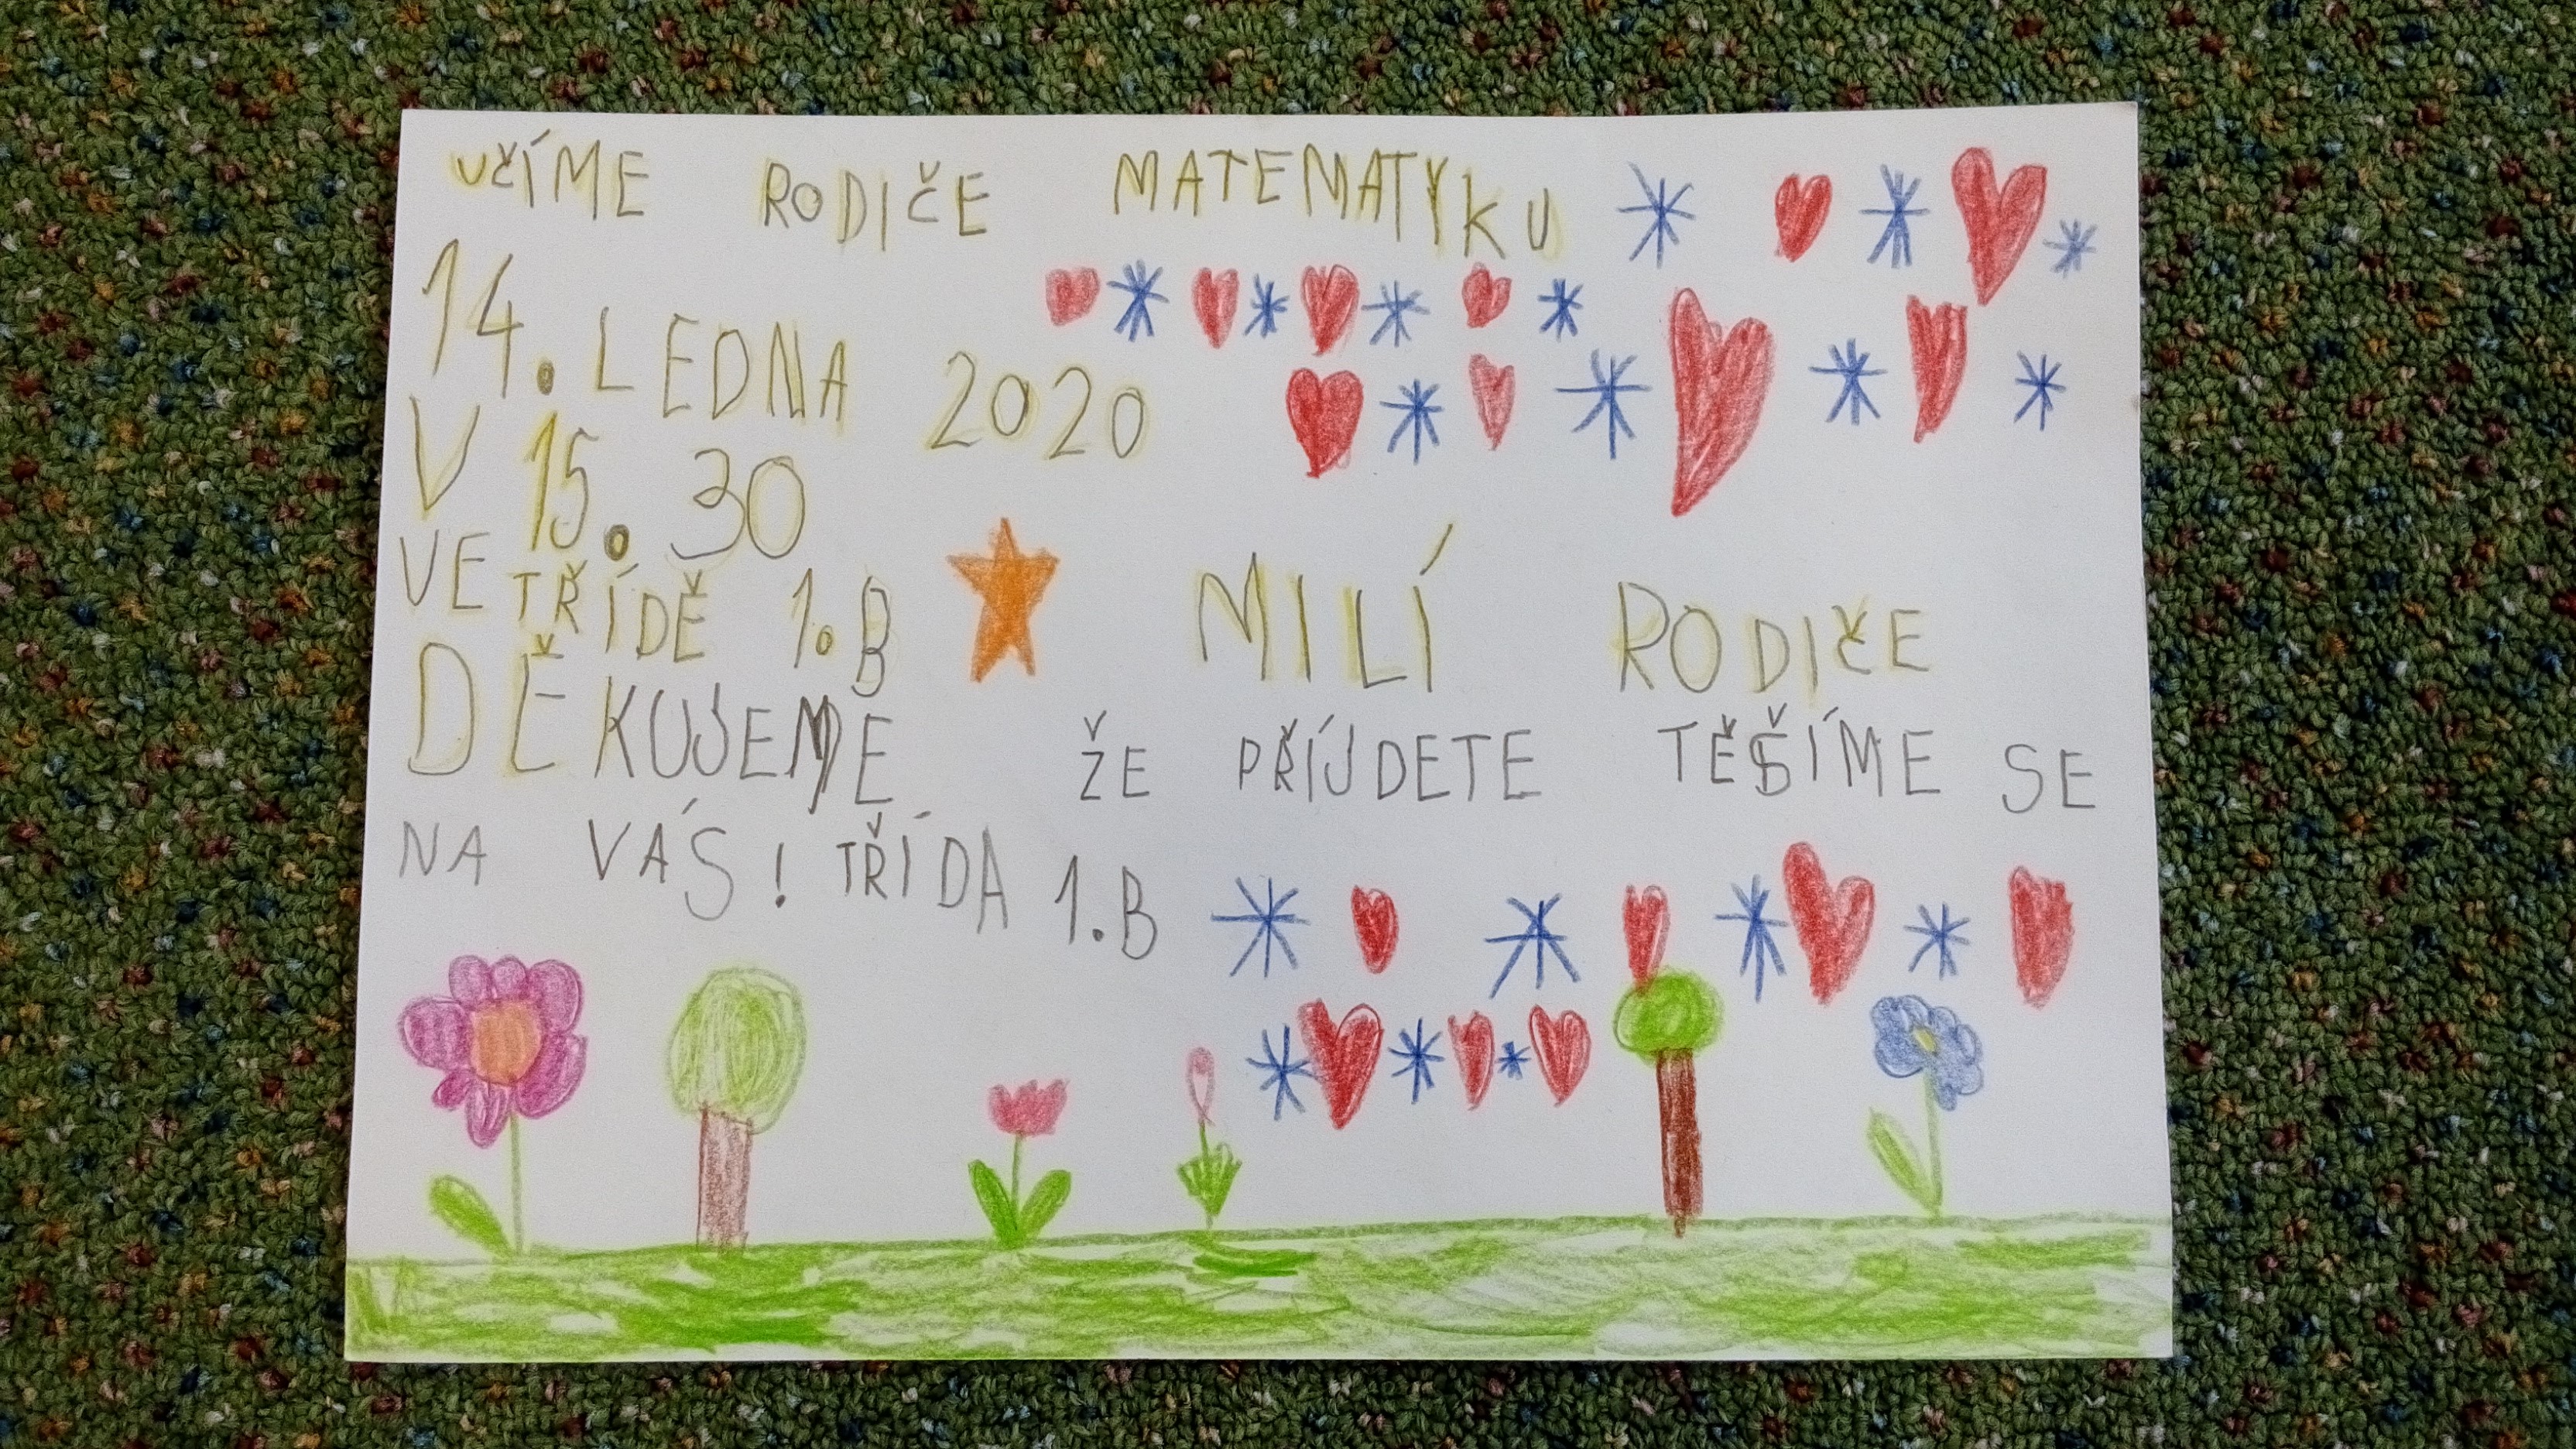 UČÍME RODIČE MATEMATYKU
14. LEDNA 2020
V 15. 30
VE TŘÍDĚ 1.B MILÍ RODIČE
DĚKUJEME ŽE PŘÍJDETE TĚŠÍME SE
NA VÁS! TŘÍDA 1.B